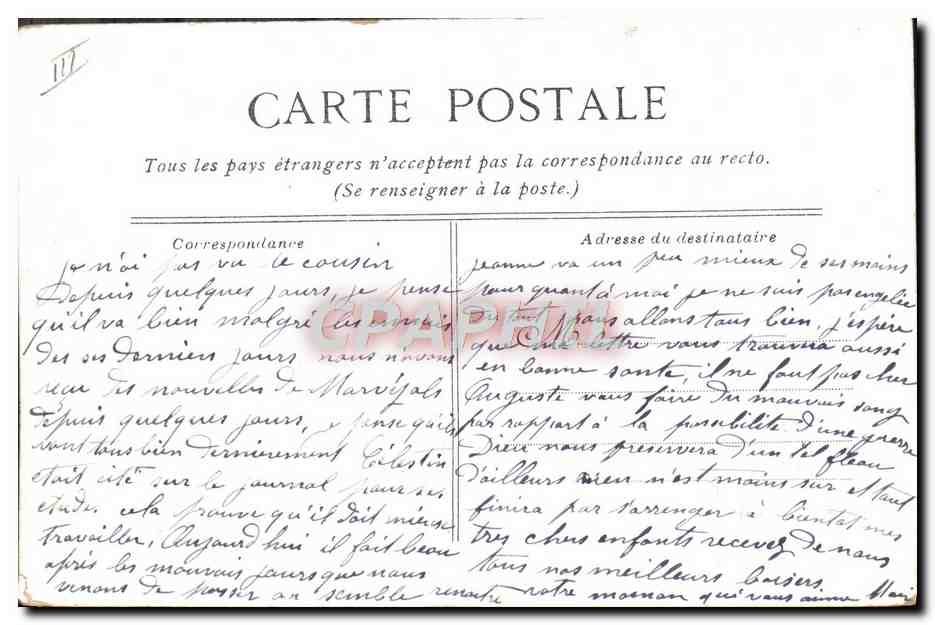 III
CARTE POSTALE
Tous les pays étrangers n'acceptent pas la correspondance au recto.
(Se renseigner à la poste.)
Correspondance
Je n'ai pas vu le cousin
Depuis quelques jours, je pense
qu'il va bien malgré les ennuis
des ses derniers jours nous n'avons
reçu des nouvelles de Marvéjols
depuis quelques jours, je pense qu'ils
sont tous bien dernièrement Célestin
etait cité sur le journal pour ses
etudes cela prouve qu'il doit mieux
travailler, Aujourd'hui il fait beau
après les mauvais jours que nous
venons de passer on semble renaître
Adresse du destinataire
Jeanne va un peu mieux de ses mains
pour quant à moi je ne suis pas engelée
du tout nous allons tous bien, j'éspère
que ma lettre vous trouvera aussi
en bonne santé, il ne faut pas cher
Auguste vous faire du mauvais sang
par rapport à la possibilité d'une guerre
Dieu nous preservera d'un tel fleau
d'ailleurs rien n'est moins sur et tout
finira par s'arrenger à bientot mes
tres chers enfants recevez de nous
tous nos meilleurs baisers
votre maman qui vous aime
CPAPHIL